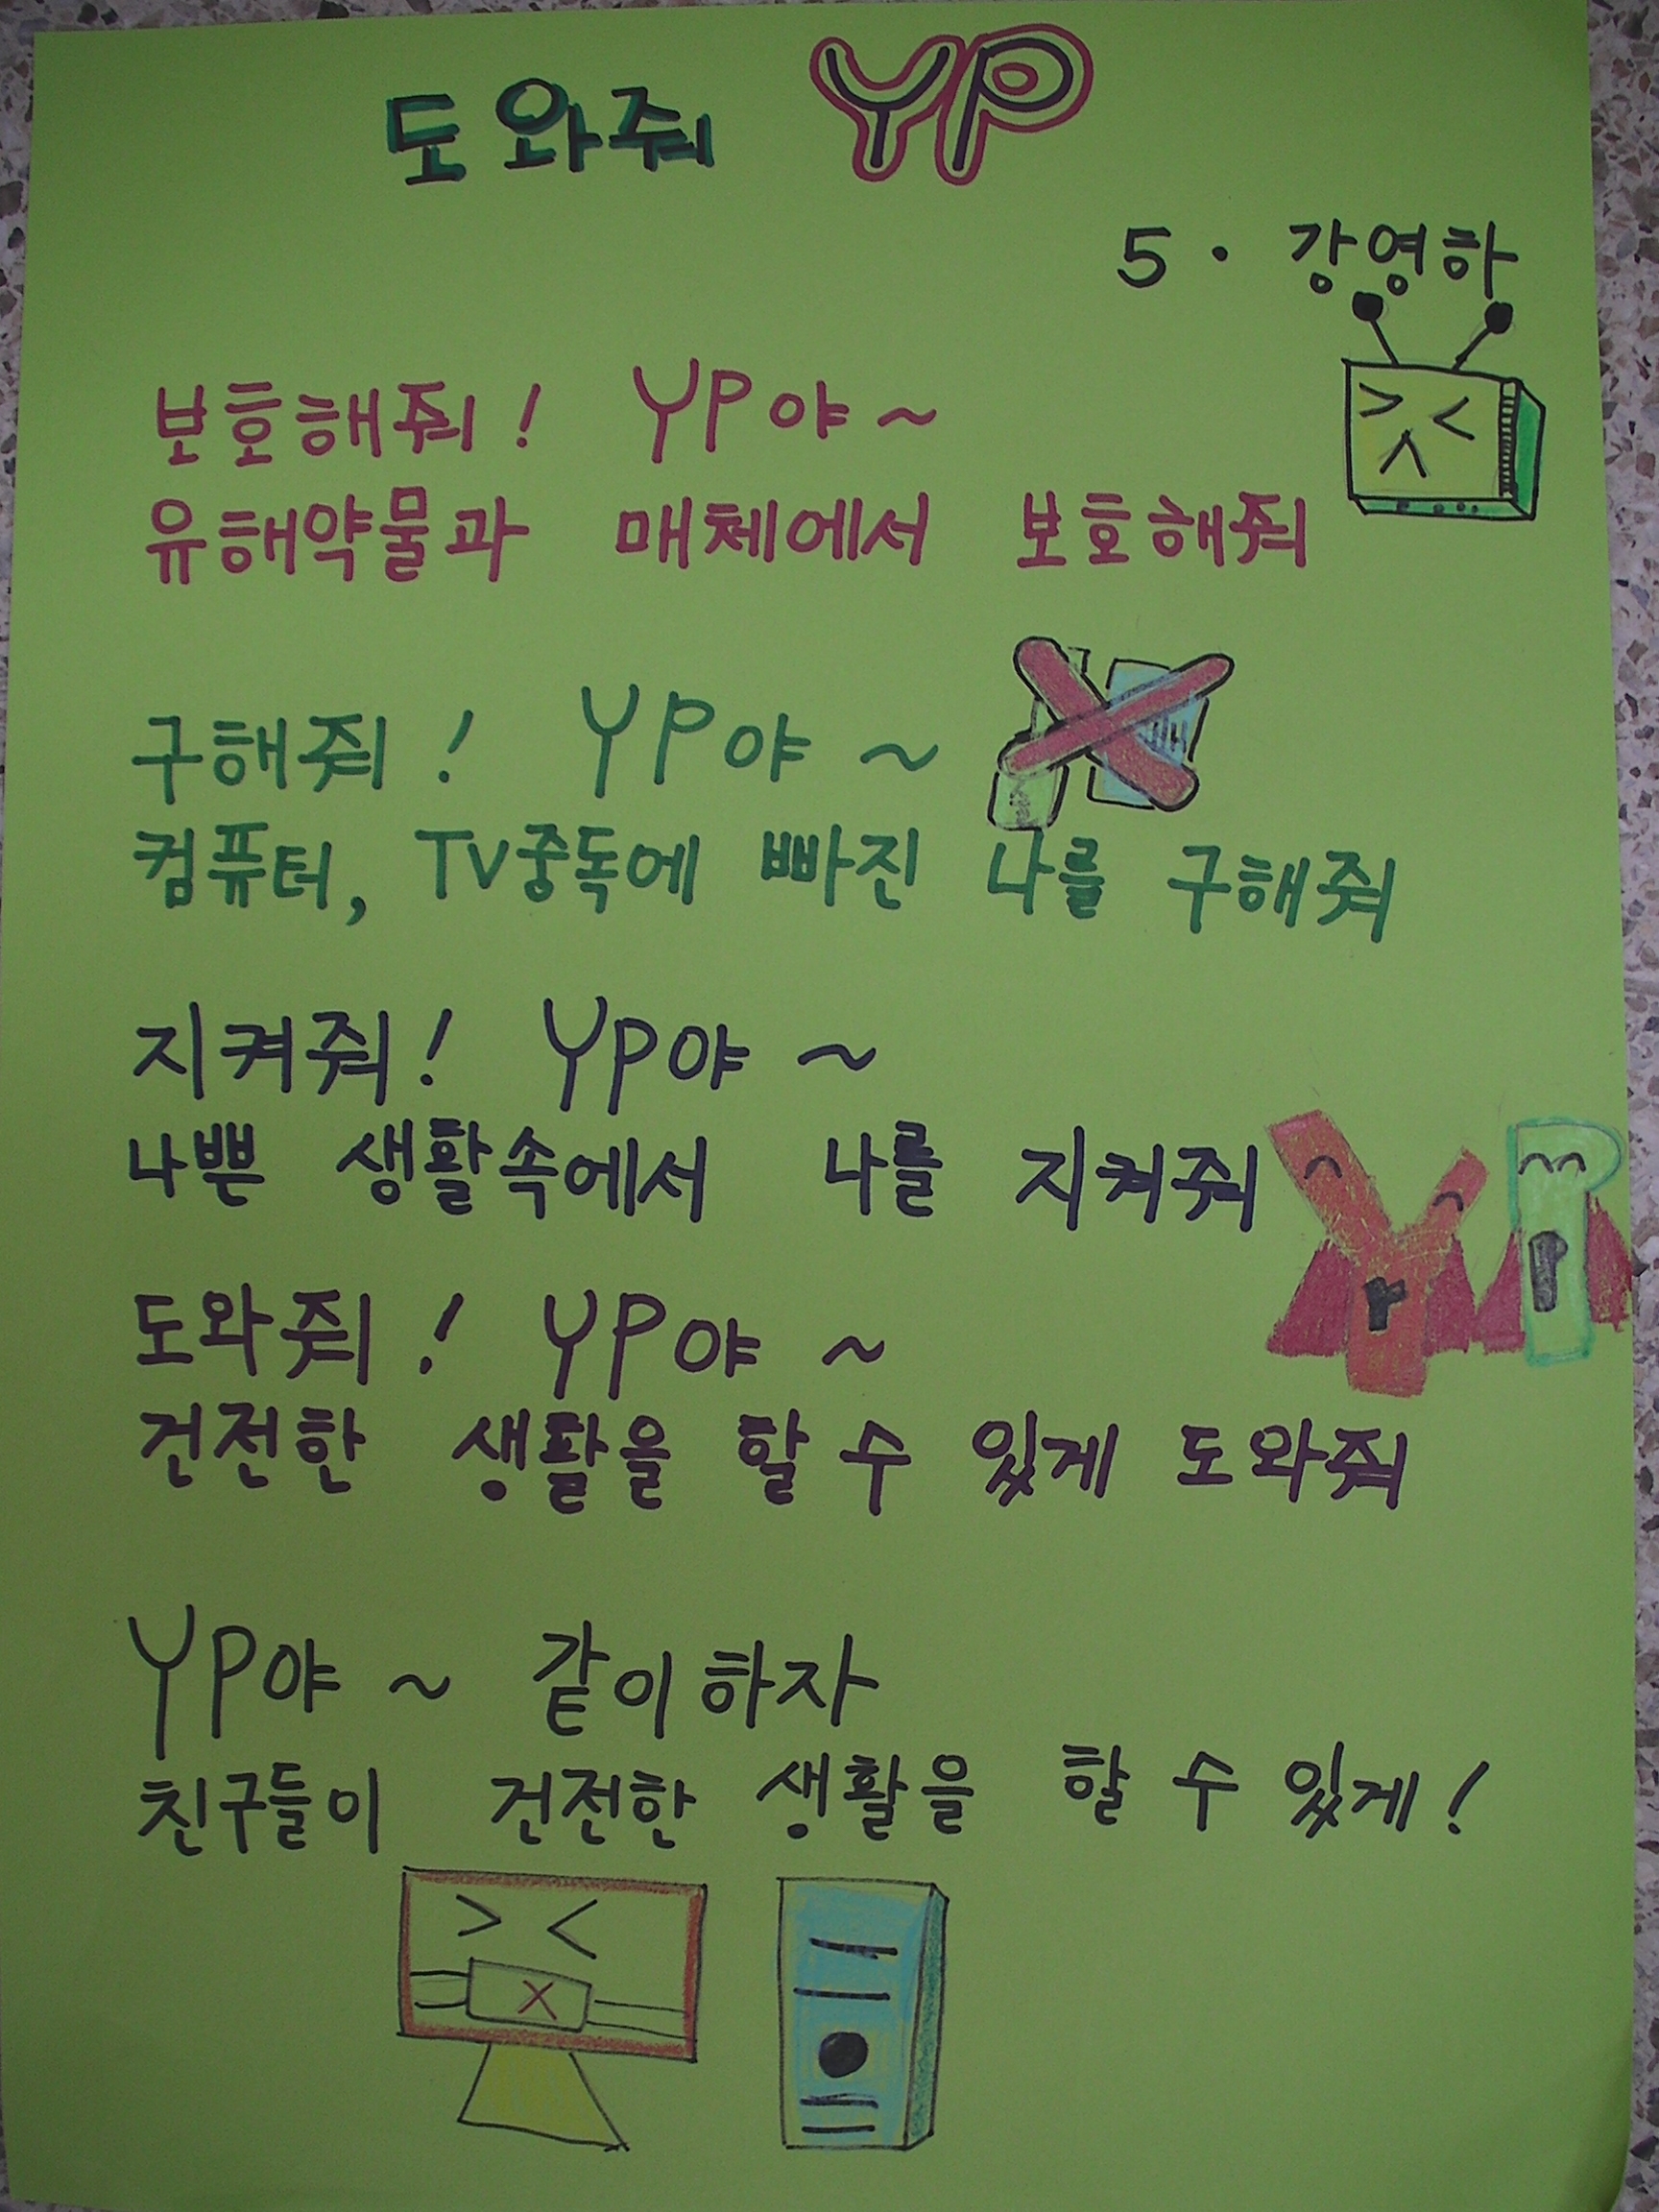 도와줘 YP
5. 강영하
보호해줘! YP야~
유해약물과 매체에서 보호해줘
구해줘! YP야~
컴퓨터, TV중독에 빠진 나를 구해줘
지켜줘! YP야~
나쁜 생활속에서 나를 지켜줘
YP
도와줘! YP야~
건전한 생활을 할 수 있게 도와줘
YP야~ 같이하자
친구들이 건전한 생활을 할 수 있게!